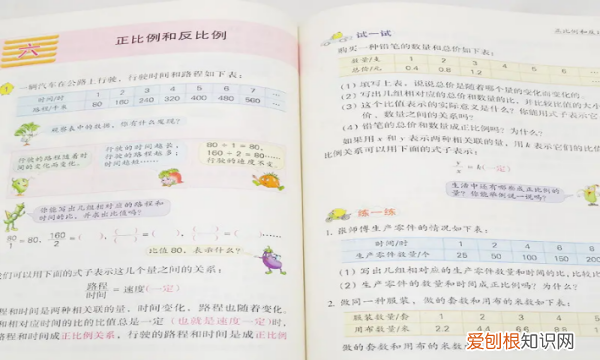 六
正比例和反比例
1
一辆汽车在公路上行驶，行驶时间和路程如下表：
时间/时 1 2 3 4 5 6 7 …
路程/千米 80 160 240 320 400 480 560 …
观察表中的数据，你有什么发现？
行驶的路程随着时
间的变化而变化。
行驶的时间越长，
行驶的路程越多；
时间越短……
80÷1=80，
160÷2=80……
行驶的速度不变。
你能写出几组相对应的路程和
时间的比，并求出比值吗？
80/1=80，160/2=（ ），
比值80，表示什么？
们可以用下面的式子表示这几个量之间的关系：
路程/时间=速度（一定）
程和时间是两种相关联的量，时间变化，路程也随着变化。
和相对应时间的比的比值总是一定（也就是速度一定）时，
路程和时间成正比例关系，行驶的路程和时间是成正比例
试一试
购买一种铅笔的数量和总价如下表：
数量/支 1 2 3 4 5 6 …
总价/元 0.4 0.8 1.2
（1）填写上表，说说总价是随着哪个量的变化而变化的。
（2）写出几组相对应的总价和数量的比，并比较比值的大小
（3）这个比值表示的实际意义是什么？你能用式子表示它
价、数量之间的关系吗？
（4）铅笔的总价和数量成正比例吗？为什么？
如果用 x 和 y 表示两种相关联的量，用 k 表示它们的比值
比例关系可以用下面的式子表示：
y/x=k（一定）
生活中还有哪些成正比例的
量？你能举例说一说吗？
练一练
1. 张师傅生产零件的情况如下表：
时间/时 1 2 4 6 8
生产零件数量/个 25 50 100 150 200
（1）写出几组相对应的生产零件数量和时间的比，比较比
（2）生产零件的数量和时间成正比例吗？为什么？
2. 做同一种服装，做的套数和用布的米数如下表：
服装数量/套 1 2 3 4
用布数量/米 2.2 4.4 6.6 8.8
做的套数和用布的米数
爱刨根知识网